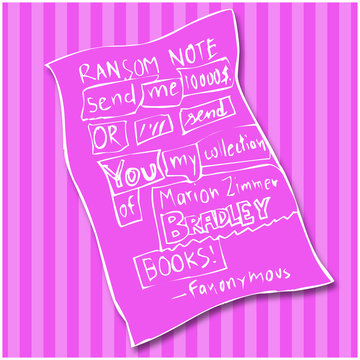 RANSOM NOTE
send me 10000$
OR I'll send
You my collection
of Marion Zimmer
BRADLEY
BOOKS!
—Fanonymous